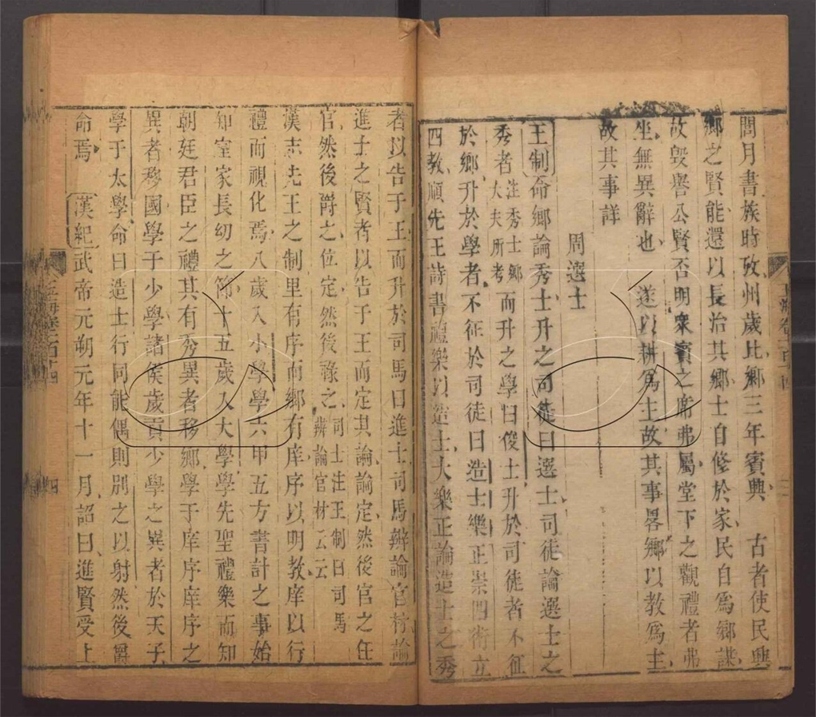 閭月書族時攷州歲比鄉三年賓興　古者使民興
鄉之賢能還以長治其鄉士自修於家民自爲鄉諜
故毀譽公賢否明衆賓之席弗屬堂下之觀禮者弗
坐無異辭也　遂以耕爲主故其事畧鄉以教爲主
故其事詳
周選士
王制命鄉論秀士升之司徒曰選士司徒論選士之
秀者注秀士鄉大夫所考而升之學曰俊士升於司徒者不征
於鄉升於學者不征於司徒曰造士樂正崇四術立
四教順先王詩書禮樂以造士大樂正論造士之秀
者以告于王而升於司馬曰進士司馬辯論官材論
進士之賢者以告于王而定其論論定然後官之任
官然後爵之位定然後祿之司士注王制曰司馬辨論官材云云
漢志先王之制里有序而鄉有庠序以明教庠以行
禮而視化焉八歲入小學學六甲五方書計之事始
知室家長幼之節十五歲入大學學先聖禮樂而知
朝廷君臣之禮其有秀異者移鄉學于庠序庠序之
異者移國學于少學諸侯歲貢少學之異者於天子
學于太學命曰造士行同能偶則別之以射然後爵
命焉　漢紀武帝元朔元年十一月詔曰進賢受上
玉海卷一百十四
四